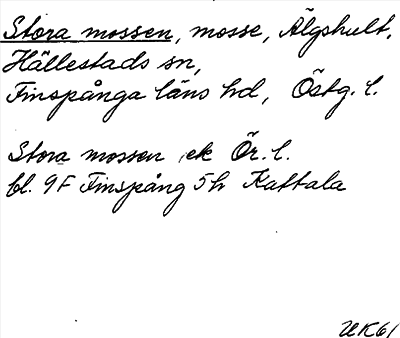 Stora mossen, mosse, Älgshult,
Hällestads sn,
Finspånga läns hd, Östg. l.
Stora mossen, ek Ör. l.
bl. 9F Finspång 5h Kattala
UK61